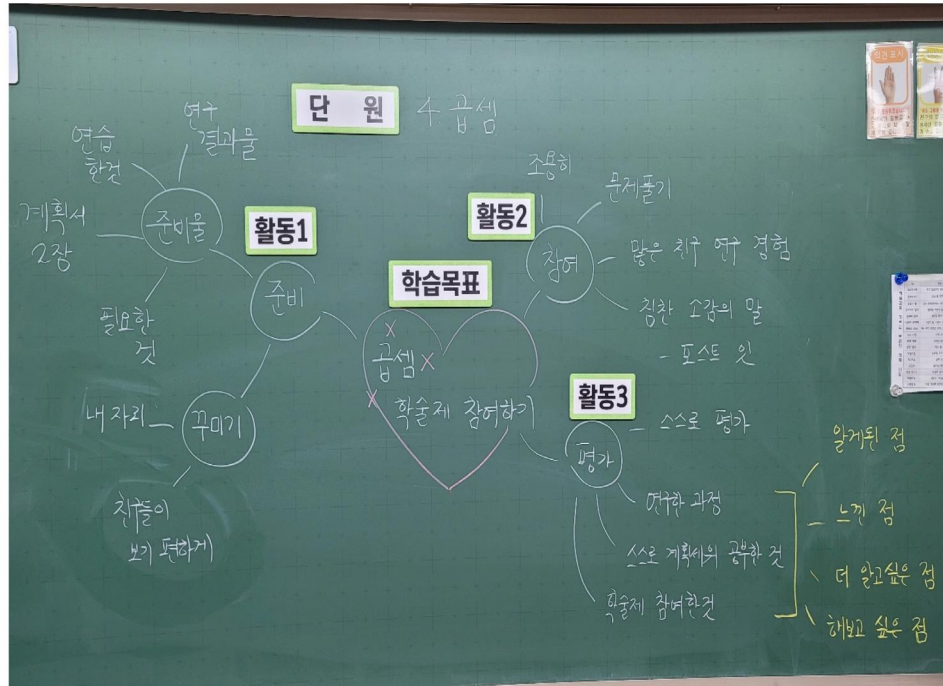 단 원 4. 곱셈
연구
결과물
연습
한것
계획서
2장
준비물
필요한
것
활동1
준비
꾸미기
내 자리
친구들이
보기 편하게
학습목표
곱셈
학술제 참여하기
활동2
참여
조용히
문제풀기
많은 친구 연구 경험
칭찬 소감의 말
- 포스트 잇
활동3
평가
스스로 평가
연구한 과정
스스로 계획세워 공부한 것
학술제 참여한것
알게된 점
느낀 점
더 알고싶은 점
해보고 싶은 점